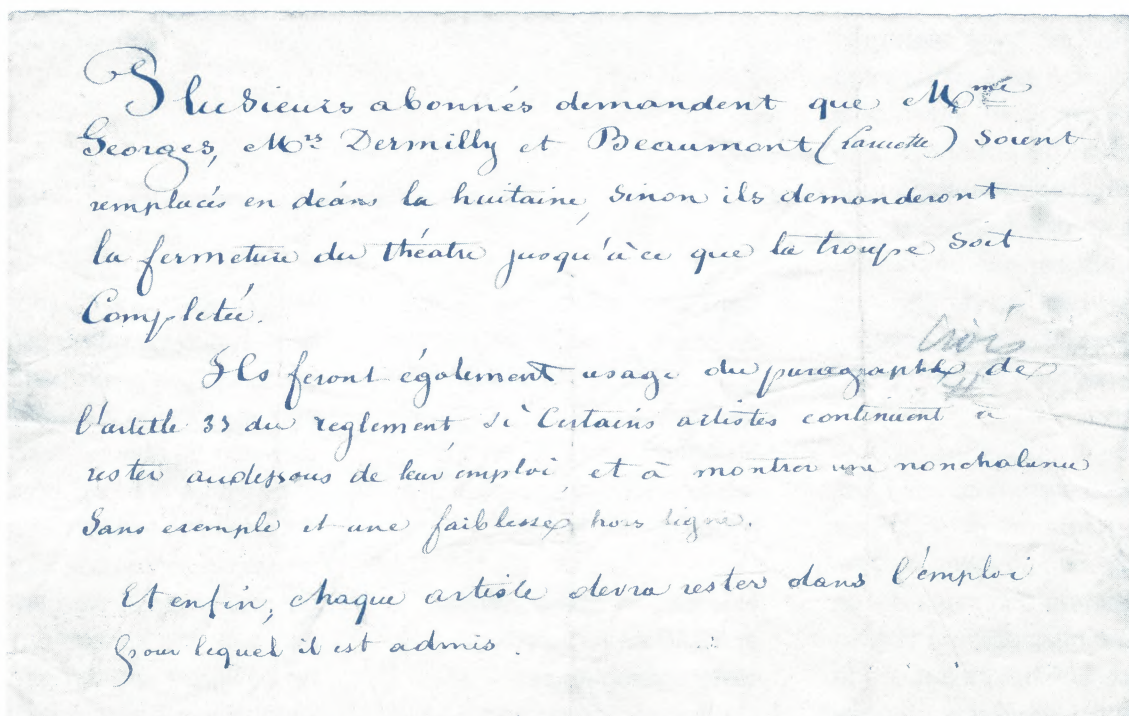 Plusieurs abonnés demandent que Mme
Georges, Mrs Dermilly et Beaumont ( ) soient
remplacés en déans la huitaine, sinon ils demanderont
la fermeture du théatre jusqu'à ce que la troupe soit
Completée.
trois
Ils feront également usage du paragraphe de
l'artitle 33 du reglement, si Certains artistes continuent à
rester audessous de leur emploi, et à montrer une nonchalance
Sans exemple et une faiblesse hors ligne.
Et enfin, chaque artiste devra rester dans l'emploi
pour lequel il est admis.